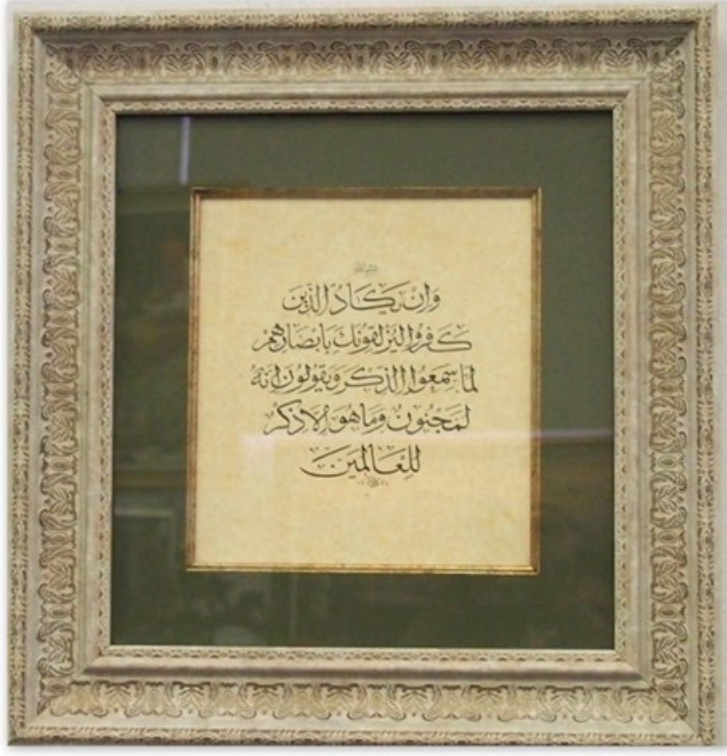 وَإِن يَكَادُ الَّذِينَ
كَفَرُوا لَيُزْلِقُونَكَ بِأَبْصَارِهِمْ
لَمَّا سَمِعُوا الذِّكْرَ وَيَقُولُونَ إِنَّهُ
لَمَجْنُونٌ وَمَا هُوَ إِلَّا ذِكْرٌ
لِلْعَالَمِينَ